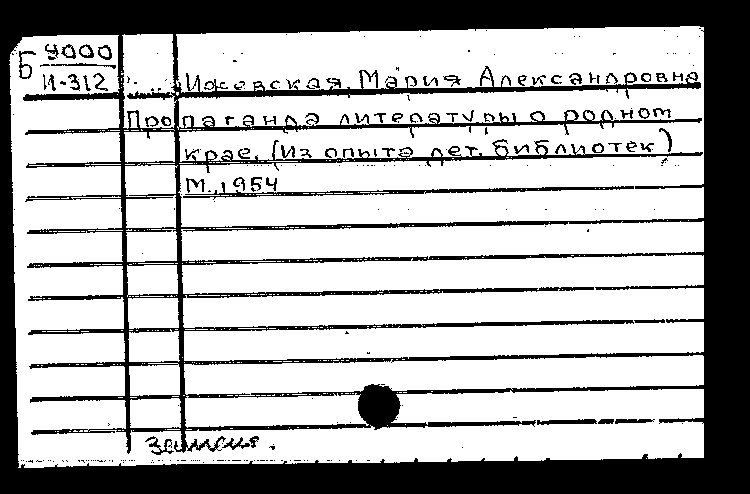 Б 9000
И-312
Ижевская, Мария Александровна
Пропаганда литературы о родном
крае. (Из опыта дет. библиотек)
М., 1954